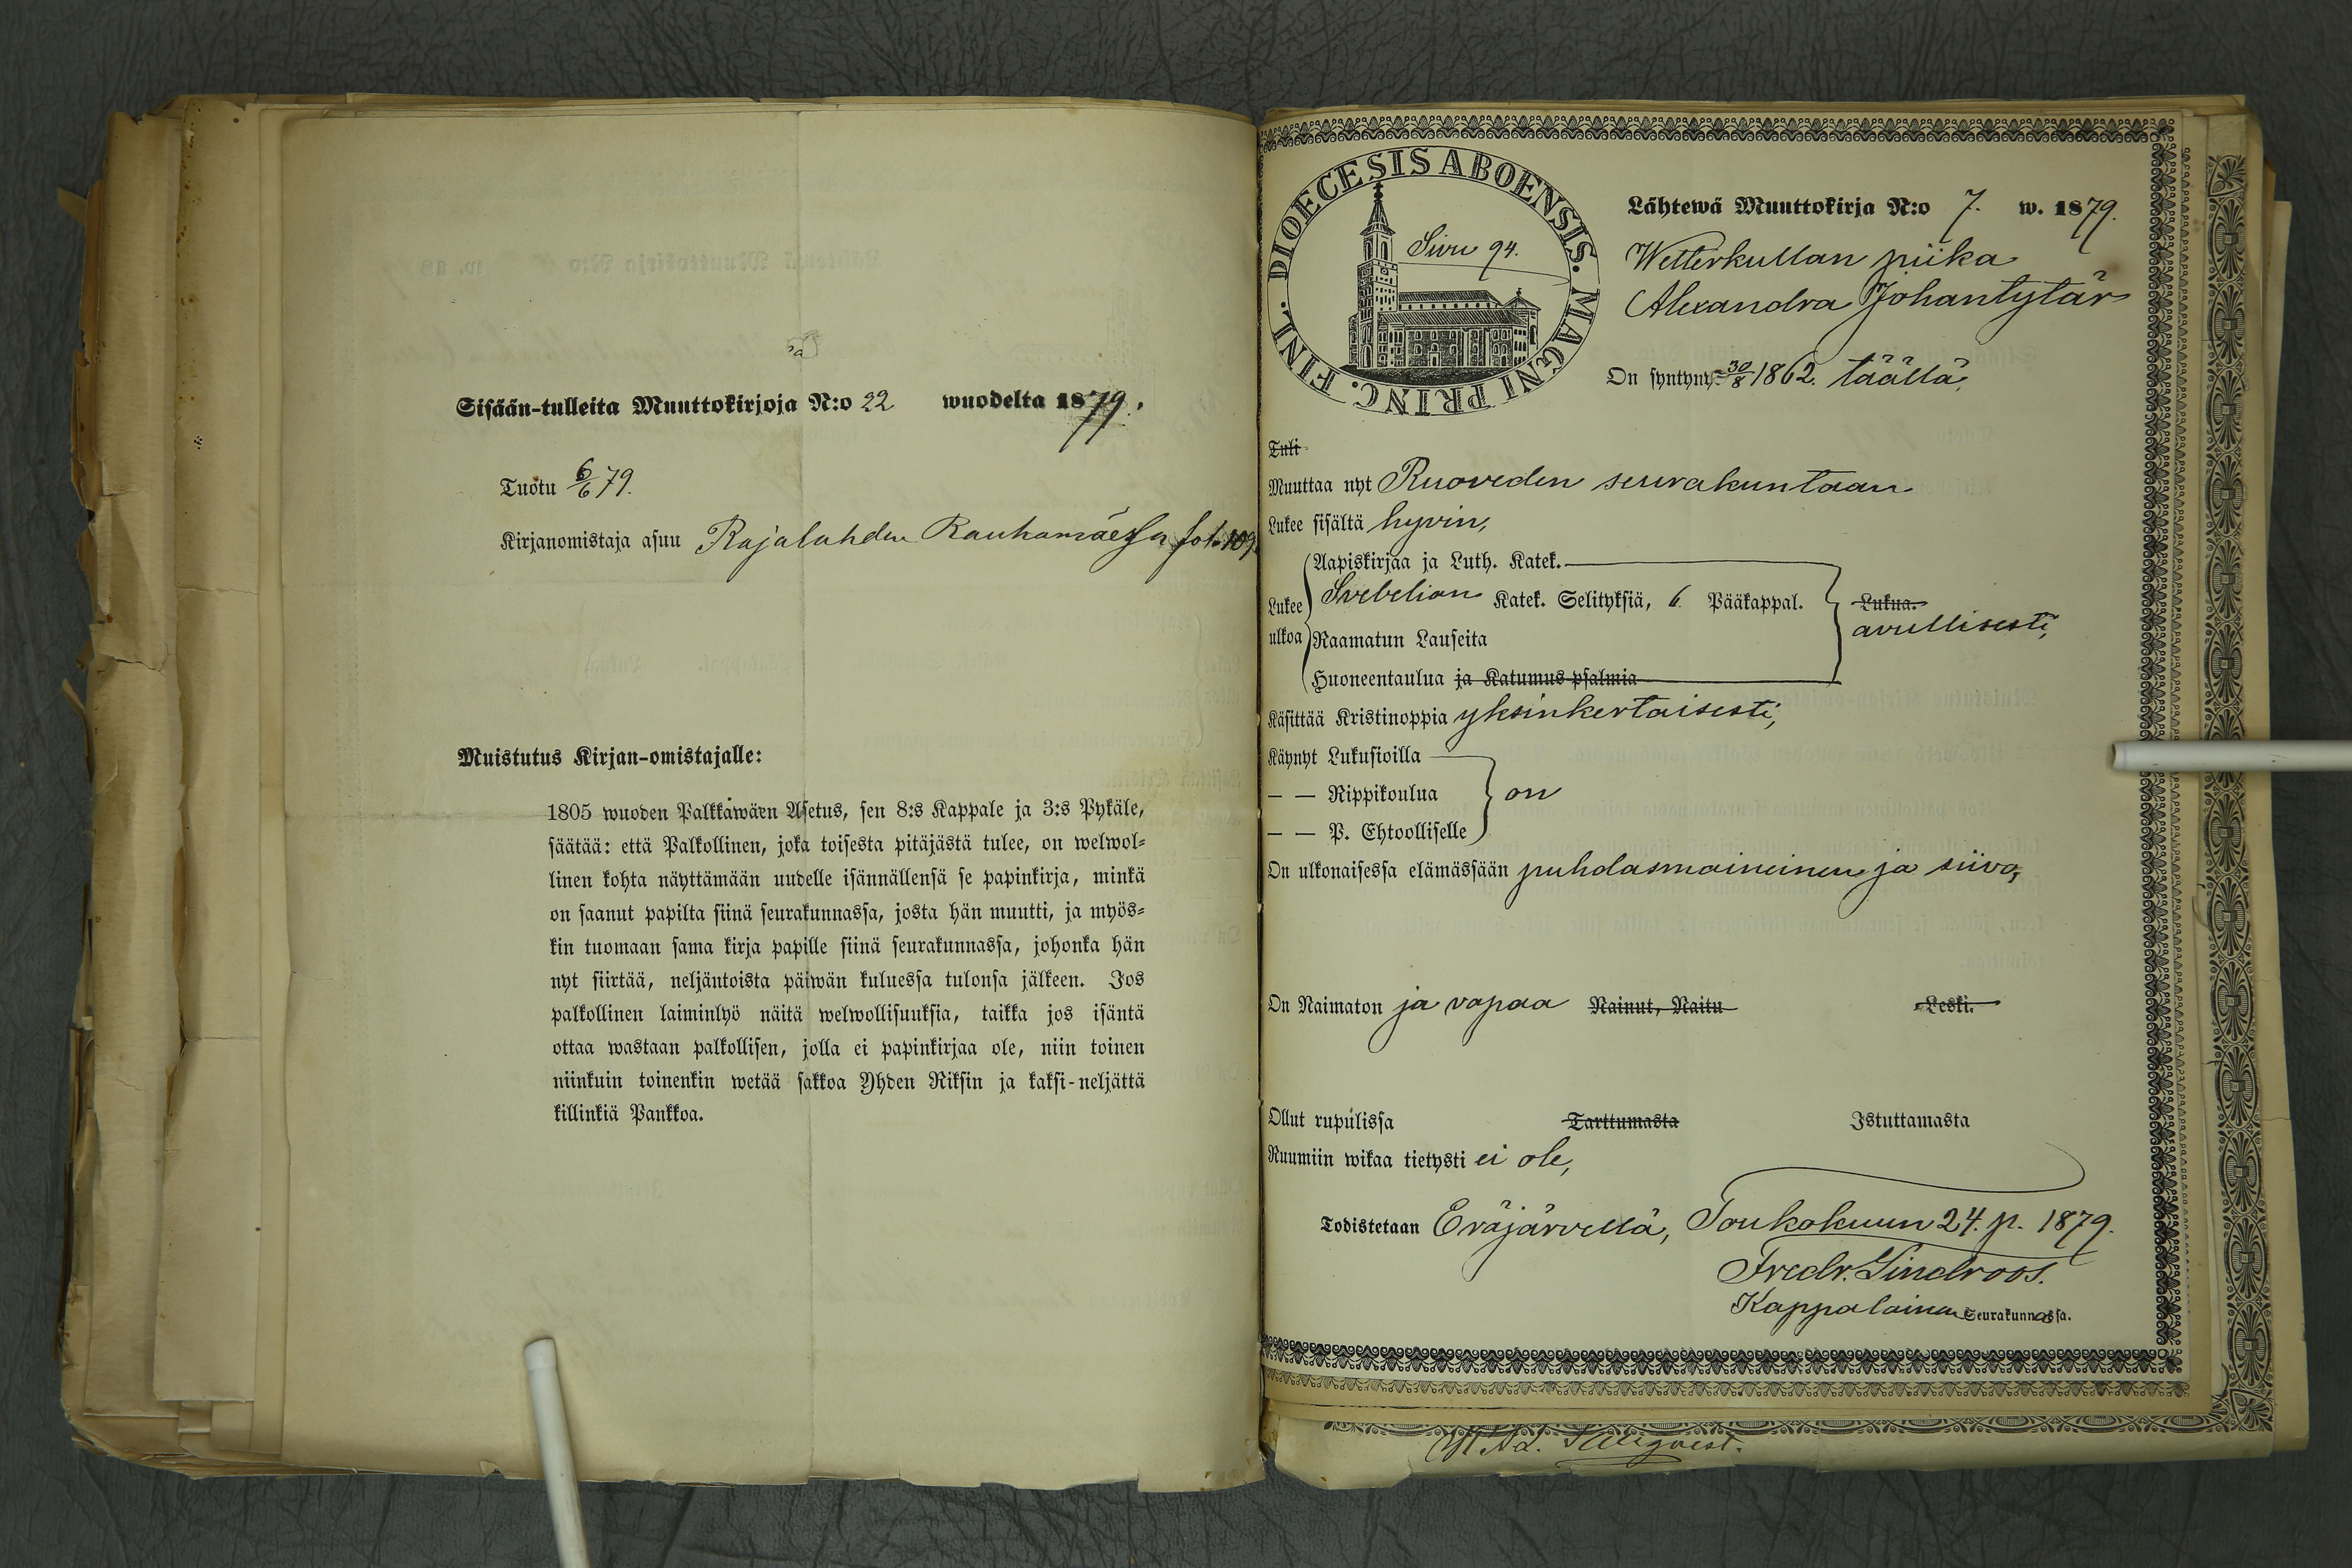 Sisään-tulleita Muuttokirjoja N:o 22 wuodelta 1879.
Tuotu 6/6 79.
Kirjanomistaja asuu Rajalahden Rauhamäessä fol. 109
Muistutus Kirjan-omistajalle:
1805 wuoden Palkkawäen Asetus, sen 8:s Kappale ja 3:s Pykäle,
säätää: että Palkollinen, joka toisesta pitäjästä tulee, on welwol-
linen kohta näyttämään uudelle isännällensä se papinkirja, minkä
on saanut papilta siinä seurakunnassa, josta hän muutti, ja myös-
kin tuomaan sama kirja papille siinä seurakunnassa, johonka hän
nyt siirtää, neljäntoista päiwän kuluessa tulonsa jälkeen. Jos
palkollinen laiminlyö näitä welwollisuuksia, taikka jos isäntä
ottaa wastaan palkollisen, jolla ei papinkirjaa ole, niin toinen
niinkuin toinenkin wetää sakkoa Yhden Riksin ja kaksi-neljättä
killinkiä Pankkoa.
DIOECESIS ABOENSIS. MAGNI PRINC. FINL.
Sivu 94.
Lähtewä Muuttokirja N:o 7. w. 1879.
Wetterkullan piika
Alexandra Johantytär
On syntynyt 30/8 1862. täällä,
Tuli
Muuttaa nyt Ruoveden seurakuntaan
Lukee sisältä hyvin,
Aapiskirjaa ja Luth. Katek.
Lukee ulkoa
Svebelion Katek. Selityksiä, 6 Pääkappal.
Lukua.
avullisesti,
Raamatun Lauseita
Huoneentaulua ja Katumus psalmia
Käsittää Kristinoppia yksinkertaisesti,
Käynyt Lukusioilla
— — Rippikoulua on
— — P. Ehtoolliselle
On ulkonaisessa elämässään puhdasmaineinen ja siivo,
On Naimaton ja vapaa Nainut, Naitu Leski.
Ollut rupulissa Tarttumasta Istuttamasta
Ruumiin wikaa tietysti ei ole,
Todistetaan Eräjärvellä, Toukokuun 24. p. 1879.
Fredr. Lindroos.
Kappalainen Seurakunnassa.